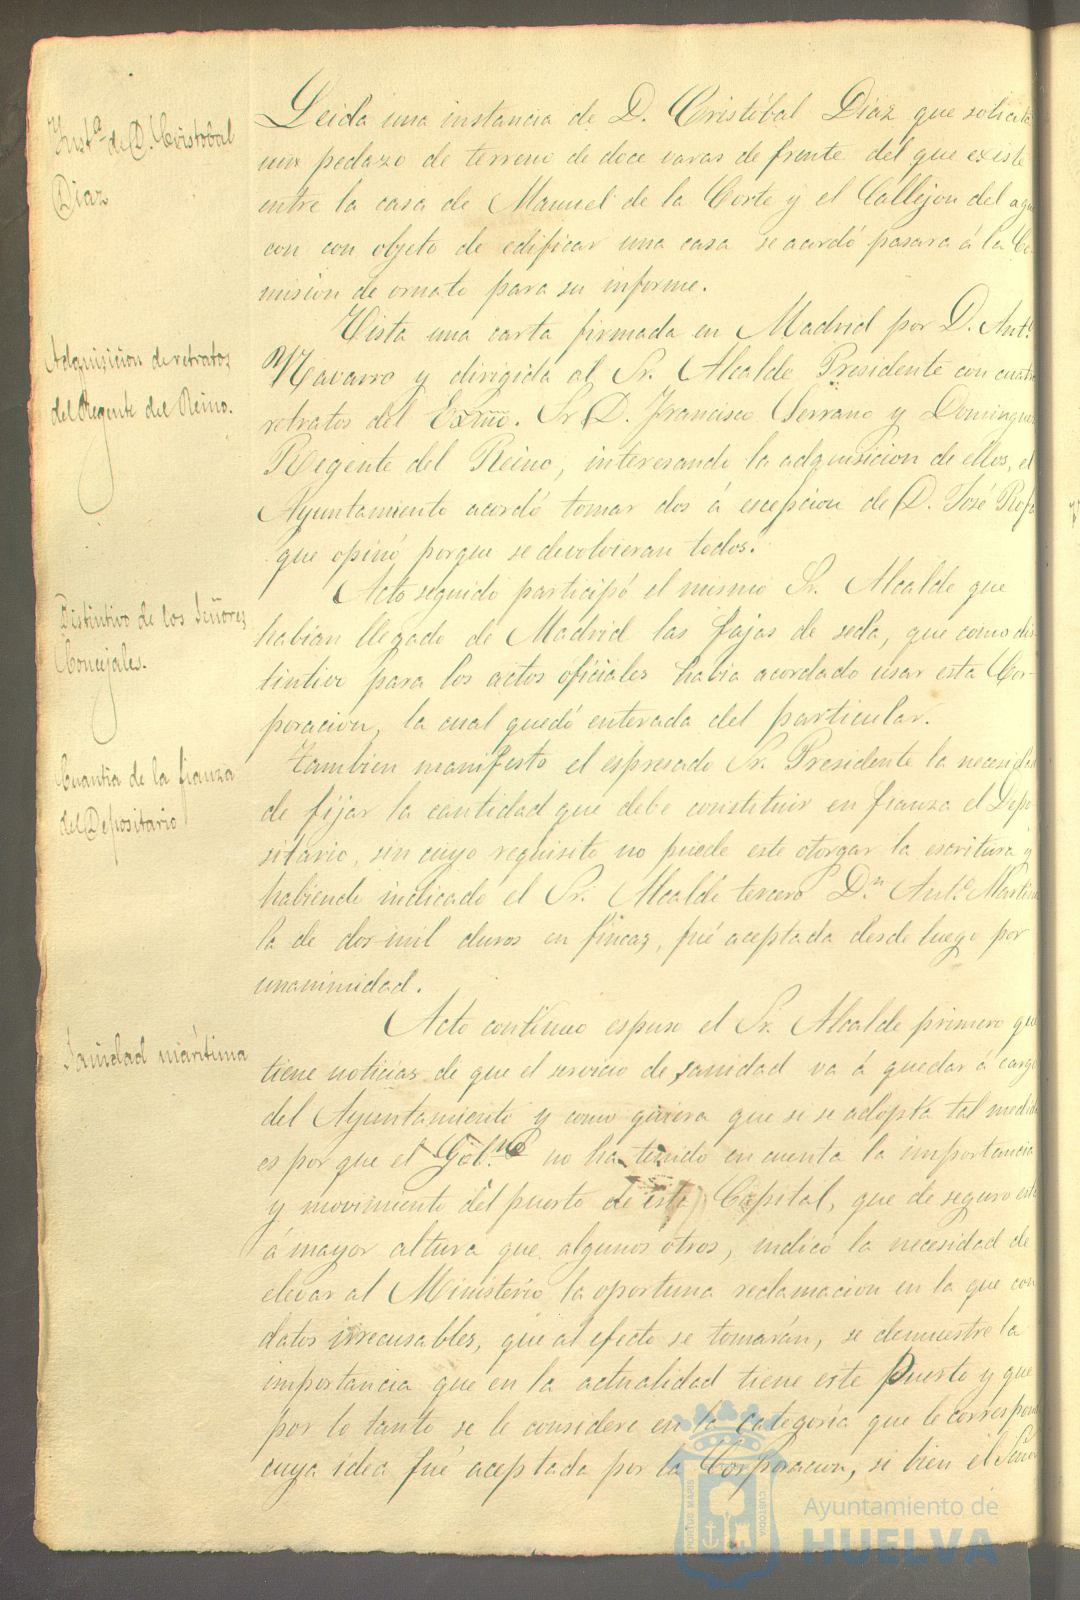 Inst.ª de D. Cristobal
Diaz
Leida una instancia de D. Cristóbal Diaz que solicita
un pedazo de terreno de doce varas de frente del que existe
entre la casa de Manuel de la Corte y el Callejon del agu
con con objeto de edificar una casa se acordó pasara á la Co-
mision de ornato para su informe.
Adquisicion de retratos
del Regente del Reino.
Vista una carta firmada en Madrid por D. Ant.º
Navarro y dirigida al Sr. Alcalde Presidente con cuatro
retratos del Exmo. Sr D. Francisco Serrano y Dominguez
Regente del Reino, interesando la adquisicion de ellos, el
Ayuntamiento acordó tomar dos á escepcion de D. José Rofa
que opinó porque se devolvieran todos.
Distintivo de los Señores
Concejales.
Acto seguido participó el mismo Sr. Alcalde que
habian llegado de Madrid las fajas de seda, que como dis-
tintivo para los actos oficiales habia acordado usar esta Cor-
poracion, la cual quedó enterada del particular.
Cuantia de la fianza
del Depositario
Tambien manifesto el espresado Sr. Presidente la necesidad
de fijar la cantidad que debe constituir en fianza el Depo
sitario, sin cuyo requisito no puede este otorgar la escritura y
habiendo indicado el Sr. Alcalde tercero D.n Ant.º Martin
la de dos mil duros en fincas, fué aceptada desde luego por
unanimidad.
Sanidad maritima
Acto contínuo espuso el Sr. Alcalde primero que
tiene noticias de que el servicio de sanidad va á quedar á cargo
del Ayuntamiento y como quiera que si se adopta tal medida
es por que el Gob.no no ha tenido en cuenta la importancia
y movimiento del puerto de esta Capital, que de seguro está
á mayor altura que algunos otros, indicó la necesidad de
elevar al Ministerio la oportuna reclamacion en la que con
datos irrecusables, que al efecto se tomarán, se demuestre la
importancia que en la actualidad tiene este Puerto y que
por lo tanto se le considere en la categoria que le corresponde
cuya idea fué aceptada por la Corporacion, si bien el Señor
PORTUS MARIS
CUSTODIA
Ayuntamiento de
HUELVA